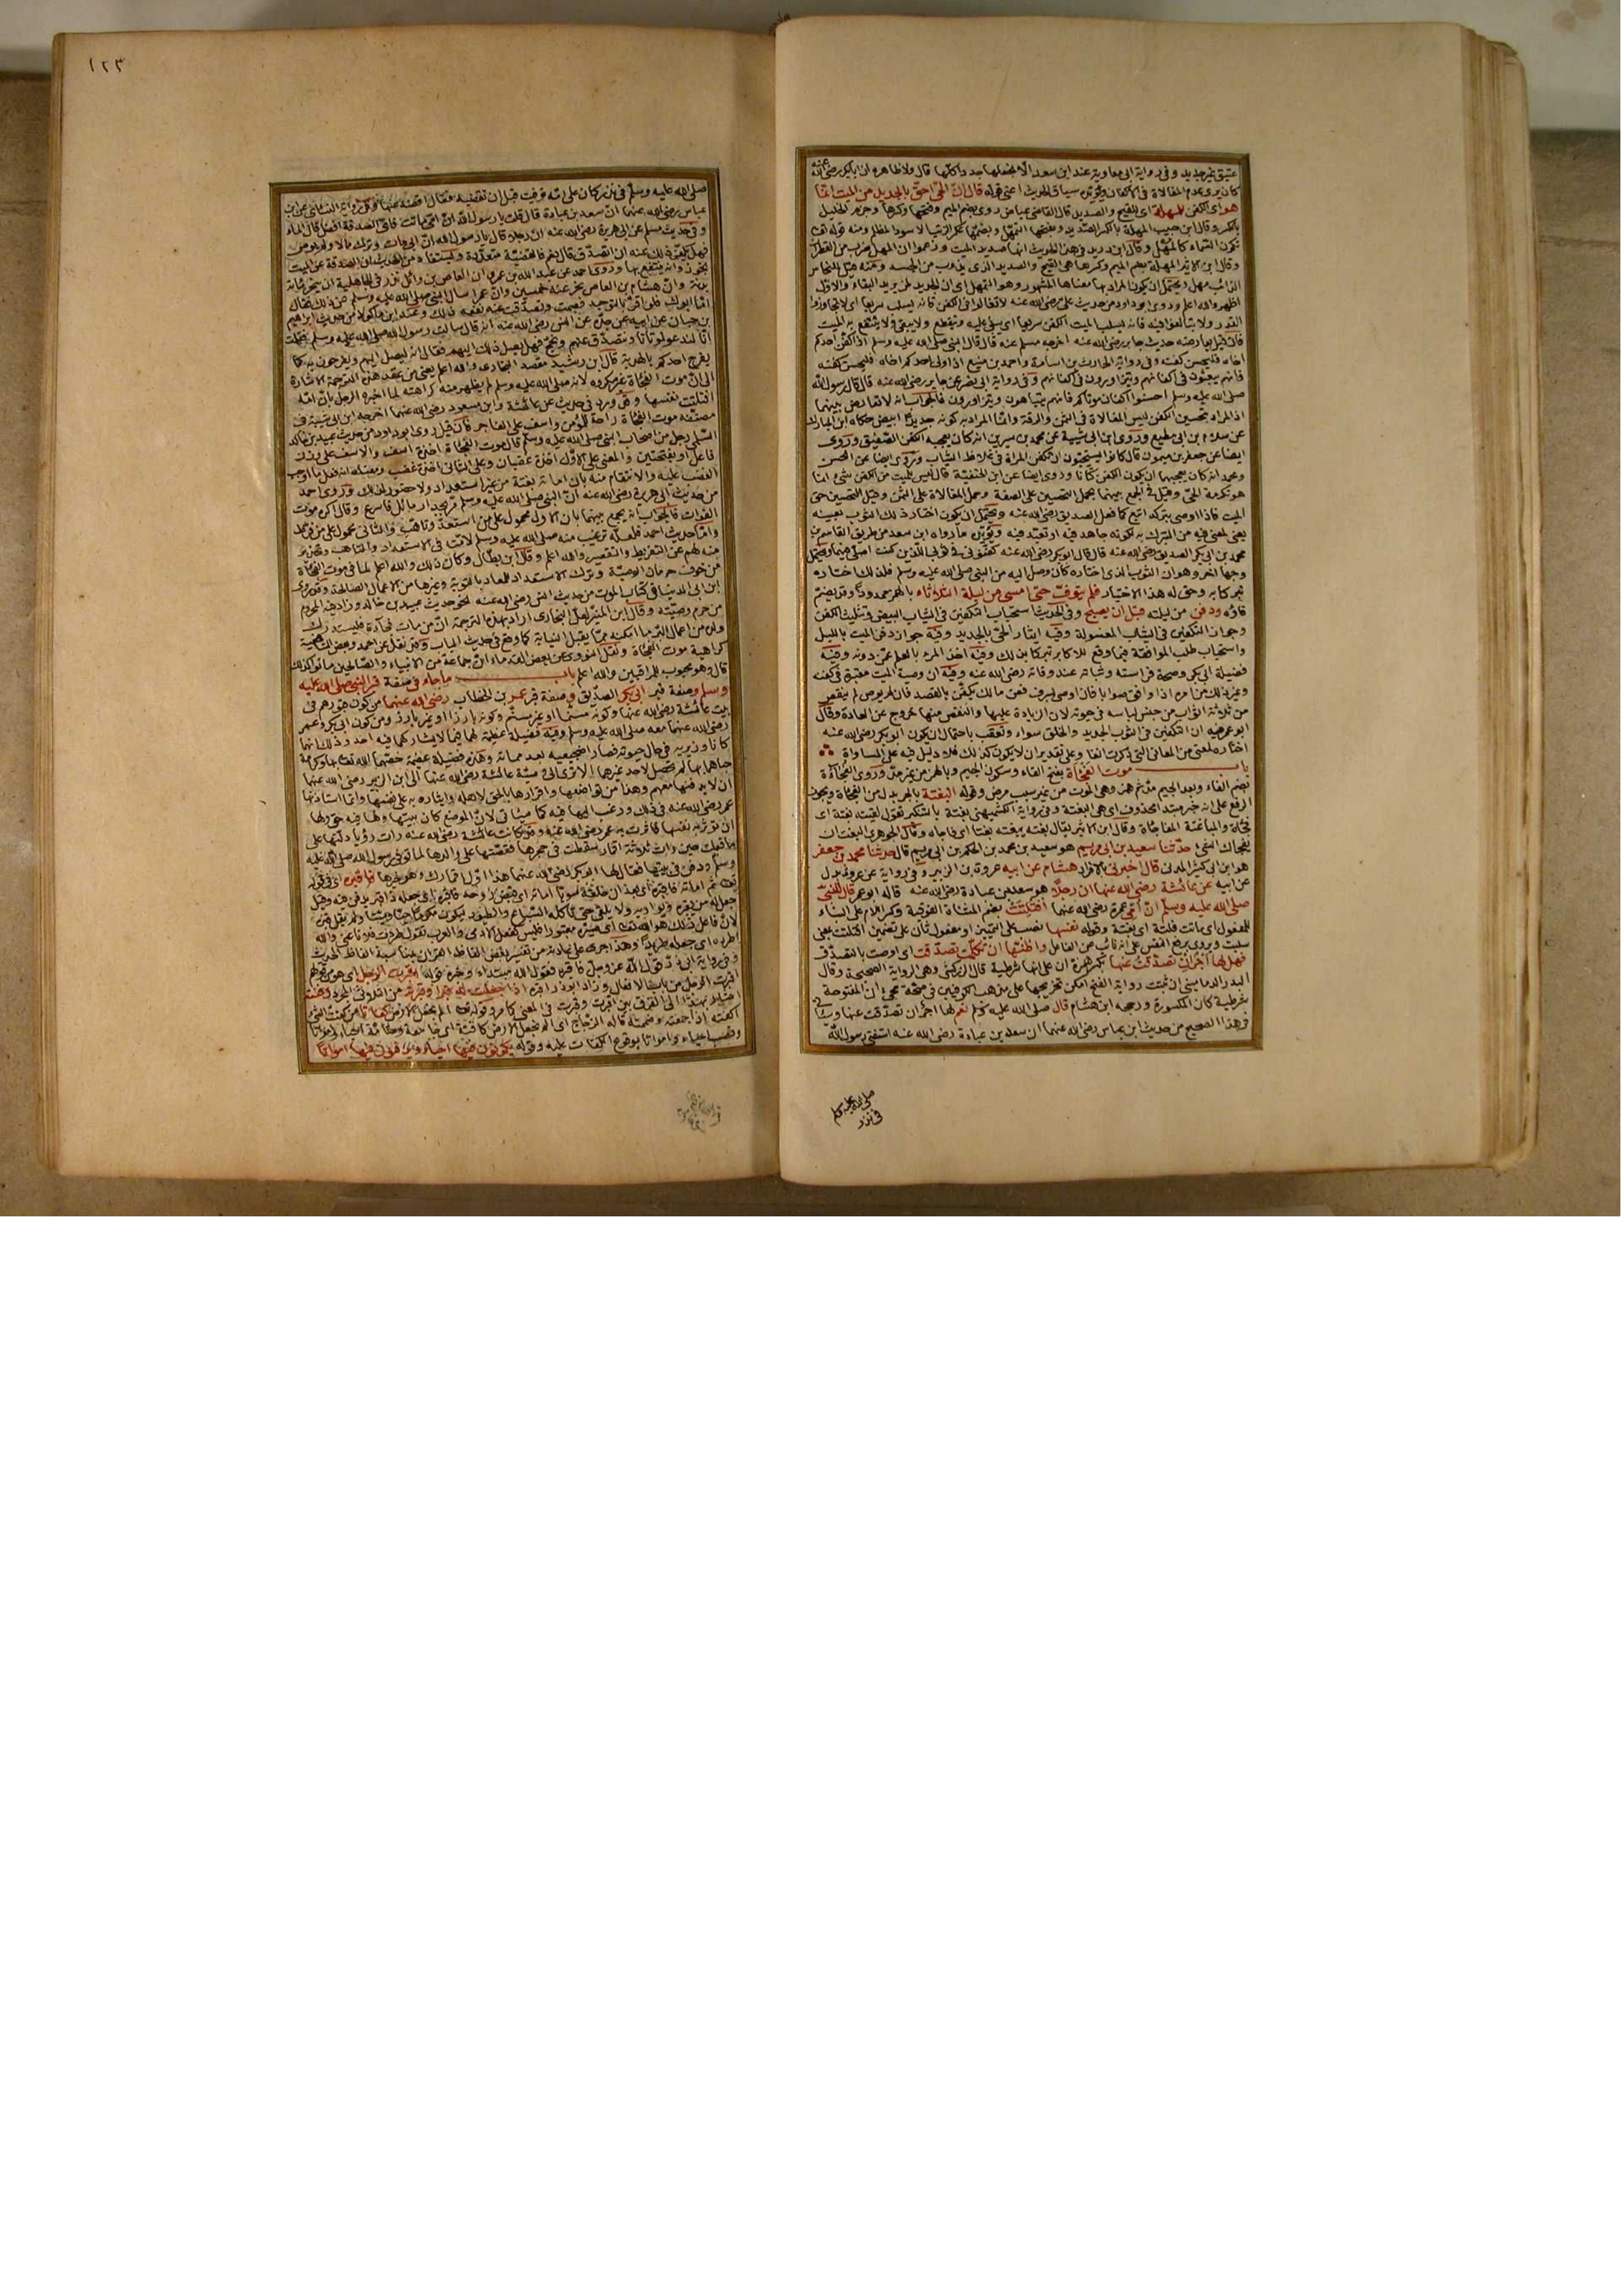 عتيق غير جديد وفى رواية ابى معاوية عند ابن سعد الا نجعلها جددا كلها قال لا ظاهره ان ابا بكر رضى الله عنه
كان يرى عدم المغالاة فى الاكفان ويؤيده سياق الحديث اعنى قوله قال ان الحى احق بالجديد من الميت انما
هو اى الكفن للمهلة اى للقيح والصديد قال القاضى عياض روى بضم الميم وفتحها وكسرها وجزم الخليل
بالكسر وقال ابن حبيب المهلة بالكسر الصديد وبفتحها التمهل وبضمها عكر الزيت الاسود المظلم ومنه قوله تعالى
تكون السماء كالمهل وقال ابن دريد فى هذا الحديث انها صديد الميت وزعموا ان المهل ضرب من القطران
وقال ابن الاثير المهلة بضم الميم وكسرها هى القيح والصديد الذى يذوب من الجسد ومنه قيل للنحاس
الذائب مهل ويحتمل ان يكون المراد بها معناها المشهور وهو التمهل اى ان الجديد لمن يريد البقاء والاول
اظهر والله اعلم وروى ابو داود من حديث على رضى الله عنه لا تغالوا فى الكفن فانه يسلب سريعا اى لا تتجاوزوا
القدر ولا تبالغوا فيه فانه يسلب الميت الكفن سريعا اى يبلى عليه وينقطع ولا يبقى فلا ينتفع به الميت
فان قيل يعارضه حديث جابر رضى الله عنه اخرجه مسلم عنه قال قال النبى صلى الله عليه وسلم اذا كفن احدكم
اخاه فليحسن كفنه وفى رواية الحارث بن اسامة واحمد بن منيع اذا ولى احدكم اخاه فليحسن كفنه
فانهم يبعثون فى اكفانهم ويتزاورون فى اكفانهم وفى رواية ابى نصر عن جابر رضى الله عنه قال قال رسول الله
صلى الله عليه وسلم احسنوا اكفان موتاكم فانهم يتباهون ويتزاورون فالجواب انه لا تعارض بينهما
اذ المراد بتحسين الكفن ليس المغالاة فى الثمن والرقة وانما المراد به كونه جديدا ابيض حكاه ابن المبارك
عن سلام بن ابى مطيع وروى ابن ابى شيبة عن محمد بن سيرين انه كان يعجبه الكفن الصفيق وروى
ايضا عن جعفر بن ميمون قال كانوا يستحبون ان تكفن المراة فى غلاظ الثياب وروى ايضا عن الحسن
ومحمد انه كان يعجبهما ان يكون الكفن كتانا وروى ايضا عن ابن الحنفية قال ليس للميت من الكفن شئ انما
هو تكرمة الحى وقيل فى الجمع بينهما يحمل التحسين على الصفة وحمل المغالاة على الثمن وقيل التحسين حق
الميت فاذا اوصى بتركه اتبع كما فعل الصديق رضى الله عنه ويحتمل ان يكون اختار ذلك الثوب بعينه
يعنى لمعنى فيه من التبرك به لكونه جاهد فيه او تعبد فيه ويؤيده ما رواه ابن سعد من طريق القاسم بن
محمد بن ابى بكر الصديق رضى الله عنه قال قال ابو بكر رضى الله عنه كفنونى فى ثوبى اللذين كنت اصلى فيهما ويحتمل
وجها آخر وهو ان الثوب الذى اختاره كان وصل اليه من النبى صلى الله عليه وسلم فلذلك اختاره
تبركا به وحق له هذا الاختيار فلم يتوف حتى امسى من ليلة الثلاثاء بالهمز ممدودا وقد يضم
ثاؤه ودفن من ليلته قبل ان يصبح وفى الحديث استحباب التكفين فى الثياب البيض وتثليث الكفن
وجواز التكفين فى الثياب المغسولة وفيه ايثار الحى بالجديد وفيه جواز دفن الميت بالليل
واستحباب طلب الموافقة فيما وقع للاكابر تبركا بذلك وفيه اخذ المرء بالعلم عمن دونه وفيه
فضيلة ابى بكر وصحة فراسته وثباته عند وفاته رضى الله عنه وفيه ان وصية الميت معتبرة فى كفنه
وغير ذلك من امره اذا وافق صوابا فان اوصى بسرف فعن مالك يكفن بالقصد فان لم يوص لم ينقص
من ثلاثة اثواب من جنس لباسه فى حيوته لان الزيادة عليها والنقص منها خروج عن العادة وقال
ابو عمر فيه ان التكفين فى الثوب الجديد والخلق سواء وتعقب باحتمال ان يكون ابو بكر رضى الله عنه
اختاره لمعنى من المعانى التى ذكرت آنفا وعلى تقدير ان لا يكون كذلك فلا دليل فيه على المساواة
باب موت الفجاة بفتح الفاء وسكون الجيم وبالهمز من غير مد وروى الفجاءة
بضم الفاء وبعد الجيم مد ثم همز وهى الموت من غير سبب مرض وقوله البغتة بالجر بدل من الفجاة ويجوز
الرفع على انه خبر مبتدا محذوف اى هى البغتة وفى رواية الكشميهنى بغتة بالتنكير تقول لقيته بغتة اى
فجاة والمباغتة المفاجاة وقال ابن الاثير يقال بغته يبغته بغتا اى فاجاه وقال الجوهرى البغت ان
يفجاك الشئ حدثنا سعيد بن ابى مريم هو سعيد بن محمد بن الحكم بن ابى مريم قال حدثنا محمد بن جعفر
هو ابن ابى كثير المدنى قال اخبرنى بالافراد هشام عن ابيه عروة بن الزبير وفى رواية عن عروة بدل
عن ابيه عن عائشة رضى الله عنها ان رجلا هو سعد بن عبادة رضى الله عنه قاله ابو عمر قال للنبى
صلى الله عليه وسلم ان امى عمرة رضى الله عنها افتلتت بضم المثناة الفوقية وكسر اللام على البناء
للمفعول اى ماتت فلتة اى بغتة وقوله نفسها نصب على التمييز او مفعول ثان على تضمين افتلتت بمعنى
سلبت ويروى برفع النفس على انه نائب عن الفاعل واظنها لو تكلمت تصدقت اى اوصت بالتصدق
فهل لها اجر ان تصدقت عنها بكسر الهمزة ان على انها شرطية قال الزركشى وهى الرواية الصحيحة وقال
البدر الدمامينى ان ثبتت رواية الفتح امكن تخريجها على مذهب الكوفيين فى صحة مجئ ان المفتوحة
شرطية كان المكسورة ورجحه ابن هشام قال صلى الله عليه وسلم نعم لها اجر ان تصدقت عنها
فى هذا الصحيح من حديث ابن عباس رضى الله عنهما ان سعد بن عبادة رضى الله عنه استفتى رسول الله
صلى الله عليه وسلم
فى نذر
١٢٣
صلى الله عليه وسلم فى نذر كان على امه توفيت قبل ان تقضيه فقال اقضه عنها وفى رواية النسائى عن ابن
عباس رضى الله عنهما ان سعد بن عبادة قال قلت يا رسول الله ان امى ماتت فاى الصدقة افضل قال الماء
وفى حديث مسلم عن ابى هريرة رضى الله عنه ان رجلا قال يا رسول الله ان ابى مات وترك مالا ولم يوص
فهل يكفى ذلك عنه ان اتصدق قال نعم فالقضية متعددة ويستفاد من الحديث ان الصدقة عن الميت
تجوز وانه ينتفع بها وروى احمد عن عبد الله بن عمرو ان العاص بن وائل نذر فى الجاهلية ان ينحر مائة
بدنة وان هشام بن العاص نحر عنه خمسين وان عمرا سال النبى صلى الله عليه وسلم عن ذلك فقال
اما ابوك فلو اقر بالتوحيد فصمت وتصدقت عنه نفعه ذلك وعند ابن ماكولا من حديث ابراهيم
بن حبان عن ابيه عن جده عن انس رضى الله عنه انه قال سالت رسول الله صلى الله عليه وسلم فقلت
انا لندعو لموتانا ونتصدق عنهم ونحج فهل يصل ذلك اليهم فقال انه ليصل اليهم ويفرحون به كما
يفرح احدكم بالهدية قال ابن رشيد مقصد البخارى والله اعلم يعنى من عقد هذه الترجمة الاشارة
الى ان موت الفجاة غير مكروه لانه صلى الله عليه وسلم لم يظهر منه كراهته لما اخبره الرجل بان امه
افتلتت نفسها وقد ورد فى حديث عن عائشة وابن مسعود رضى الله عنهما اخرجه ابن ابى شيبة فى
مصنفه موت الفجاة راحة للمؤمن واسف على الفاجر فان قيل روى ابو داود من حديث عبيد بن خالد
السلمى رجل من اصحاب النبى صلى الله عليه وسلم قال موت الفجاة اخذة اسف والاسف على وزن
فاعل او بفتحتين والمعنى على الاول اخذة غضبان وعلى الثانى اخذة غضب ومعناه انه فعل ما اوجب
الغضب عليه والانتقام منه بان اماته بغتة من غير استعداد ولا حضور لذلك وروى احمد
من حديث ابى هريرة رضى الله عنه ان النبى صلى الله عليه وسلم مر بجدار مائل فاسرع وقال اكره موت
الفوات فالجواب انه يجمع بينهما بان الاول محمول على من استعد وتاهب والثانى محمول على من فرط
واما حديث احمد فلعله ترغيب منه صلى الله عليه وسلم لامته فى الاستعداد والتاهب وتحذير
منه لهم عن التفريط والتقصير والله اعلم وقال ابن بطال وكان ذلك والله اعلم لما فى موت الفجاة
من خوف حرمان الوصية وترك الاستعداد للمعاد بالتوبة وغيرها من الاعمال الصالحة وقد روى
ابن ابى الدنيا فى كتاب الموت من حديث انس رضى الله عنه نحو حديث عبيد بن خالد وزاد فيه المحروم
من حرم وصيته وقال ابن المنير لعل البخارى اراد بهذه الترجمة ان من مات فجاءة فليستدرك
ولده من اعمال البر ما امكنه مما يقبل النيابة كما وقع فى حديث الباب وقد نقل عن احمد وبعض الشافعية
كراهية موت الفجاة ونقل النووى عن بعض القدماء ان جماعة من الانبياء والصالحين ماتوا كذلك
قال وهو محبوب للمراقبين والله اعلم باب ما جاء فى صفة قبر النبى صلى الله عليه
وسلم وصفة قبر ابى بكر الصديق وصفة قبر عمر بن الخطاب رضى الله عنهما من كون قبورهم فى
بيت عائشة رضى الله عنها وكونه مسنما او غير مسنم وكونه بارزا او غير بارز ومن كون ابى بكر وعمر
رضى الله عنهما معه صلى الله عليه وسلم وفيه فضيلة عظيمة لهما فيما لا يشاركهما فيه احد وذلك انهما
كانا وزيريه فى حال حيوته فصارا ضجيعيه بعد مماته وهذه فضيلة عظيمة خصهما الله تعالى بها وكرامة
حباهما بها لم تحصل لاحد غيرهما الا ترى الى وصية عائشة رضى الله عنها الى ابن الزبير رضى الله عنهما
ان لا يدفنها معهم وهذا من تواضعها واقرارها بالحق لاهله وايثاره به على نفسها وانما استاذنها
عمر رضى الله عنه فى ذلك ورغب اليها فيه كما سياتى لان الموضع كان بيتها ولها فيه حق ولها
ان تؤثر به نفسها فاثرت به عمر رضى الله عنه وقد كانت عائشة رضى الله عنها رات رؤيا دلتها على
ما فعلت حين رات ثلاثة اقمار سقطت فى حجرها فقصتها على والدها لما توفى رسول الله صلى الله عليه
وسلم ودفن فى بيتها فقال لها ابو بكر رضى الله عنهما هذا اول اقمارك وهو خيرها فاقبره اى فى قوله
تعالى ثم اماته فاقبره